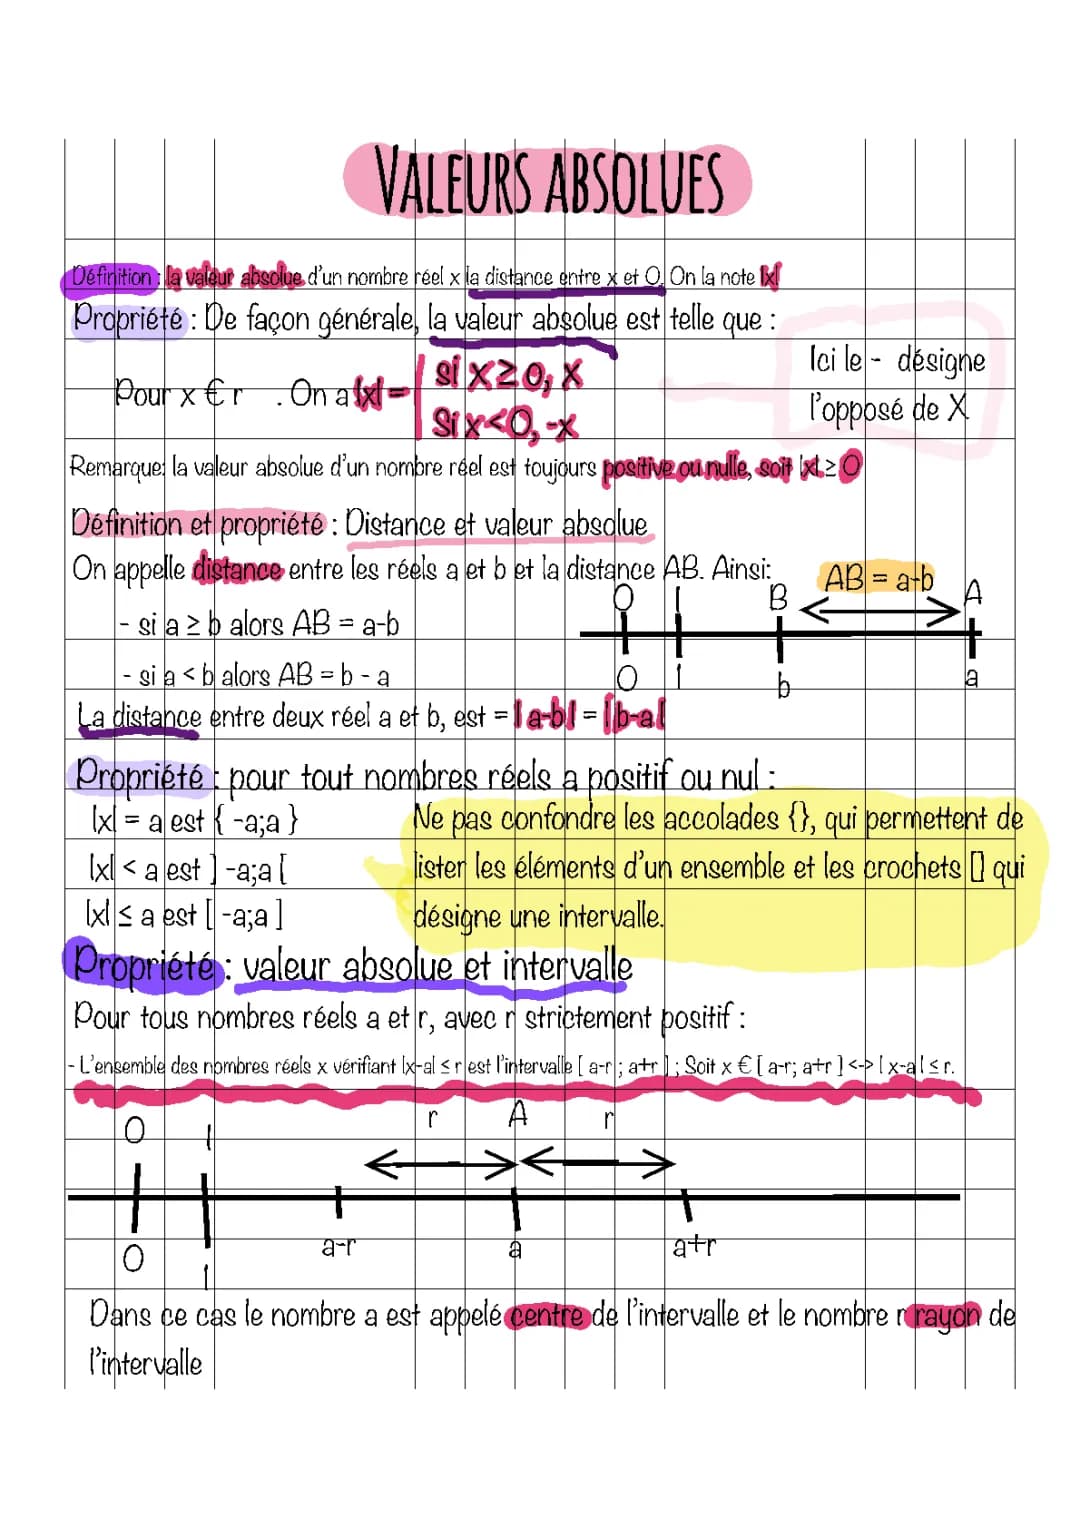 VALEURS ABSOLUES
Définition : la valeur absolue d'un nombre réel x la distance entre x et 0. On la note |x|
Propriété : De façon générale, la valeur absolue est telle que :
Ici le - désigne
l'opposé de X
Pour x € r . On a |x| =
si x ≥ 0, x
Si x < 0, -x
Remarque: la valeur absolue d'un nombre réel est toujours positive ou nulle, soit |x| ≥ 0
Définition et propriété : Distance et valeur absolue
On appelle distance entre les réels a et b et la distance AB. Ainsi:
- si a ≥ b alors AB = a-b
- si a < b alors AB = b - a
O I B AB = a-b A
0 1 b a
La distance entre deux réel a et b, est = |a-b| = |b-a|
Propriété : pour tout nombres réels a positif ou nul :
|x| = a est { -a;a }
|x| < a est ] -a;a [
|x| ≤ a est [ -a;a ]
Ne pas confondre les accolades {}, qui permettent de
lister les éléments d'un ensemble et les crochets [] qui
désigne une intervalle.
Propriété : valeur absolue et intervalle
Pour tous nombres réels a et r, avec r strictement positif :
- L'ensemble des nombres réels x vérifiant |x-a| ≤ r est l'intervalle [ a-r ; a+r ] ; Soit x € [ a-r; a+r ] <-> | x-a | ≤ r.
O I r A r
0 1 a-r a a+r
Dans ce cas le nombre a est appelé centre de l'intervalle et le nombre r rayon de
l'intervalle